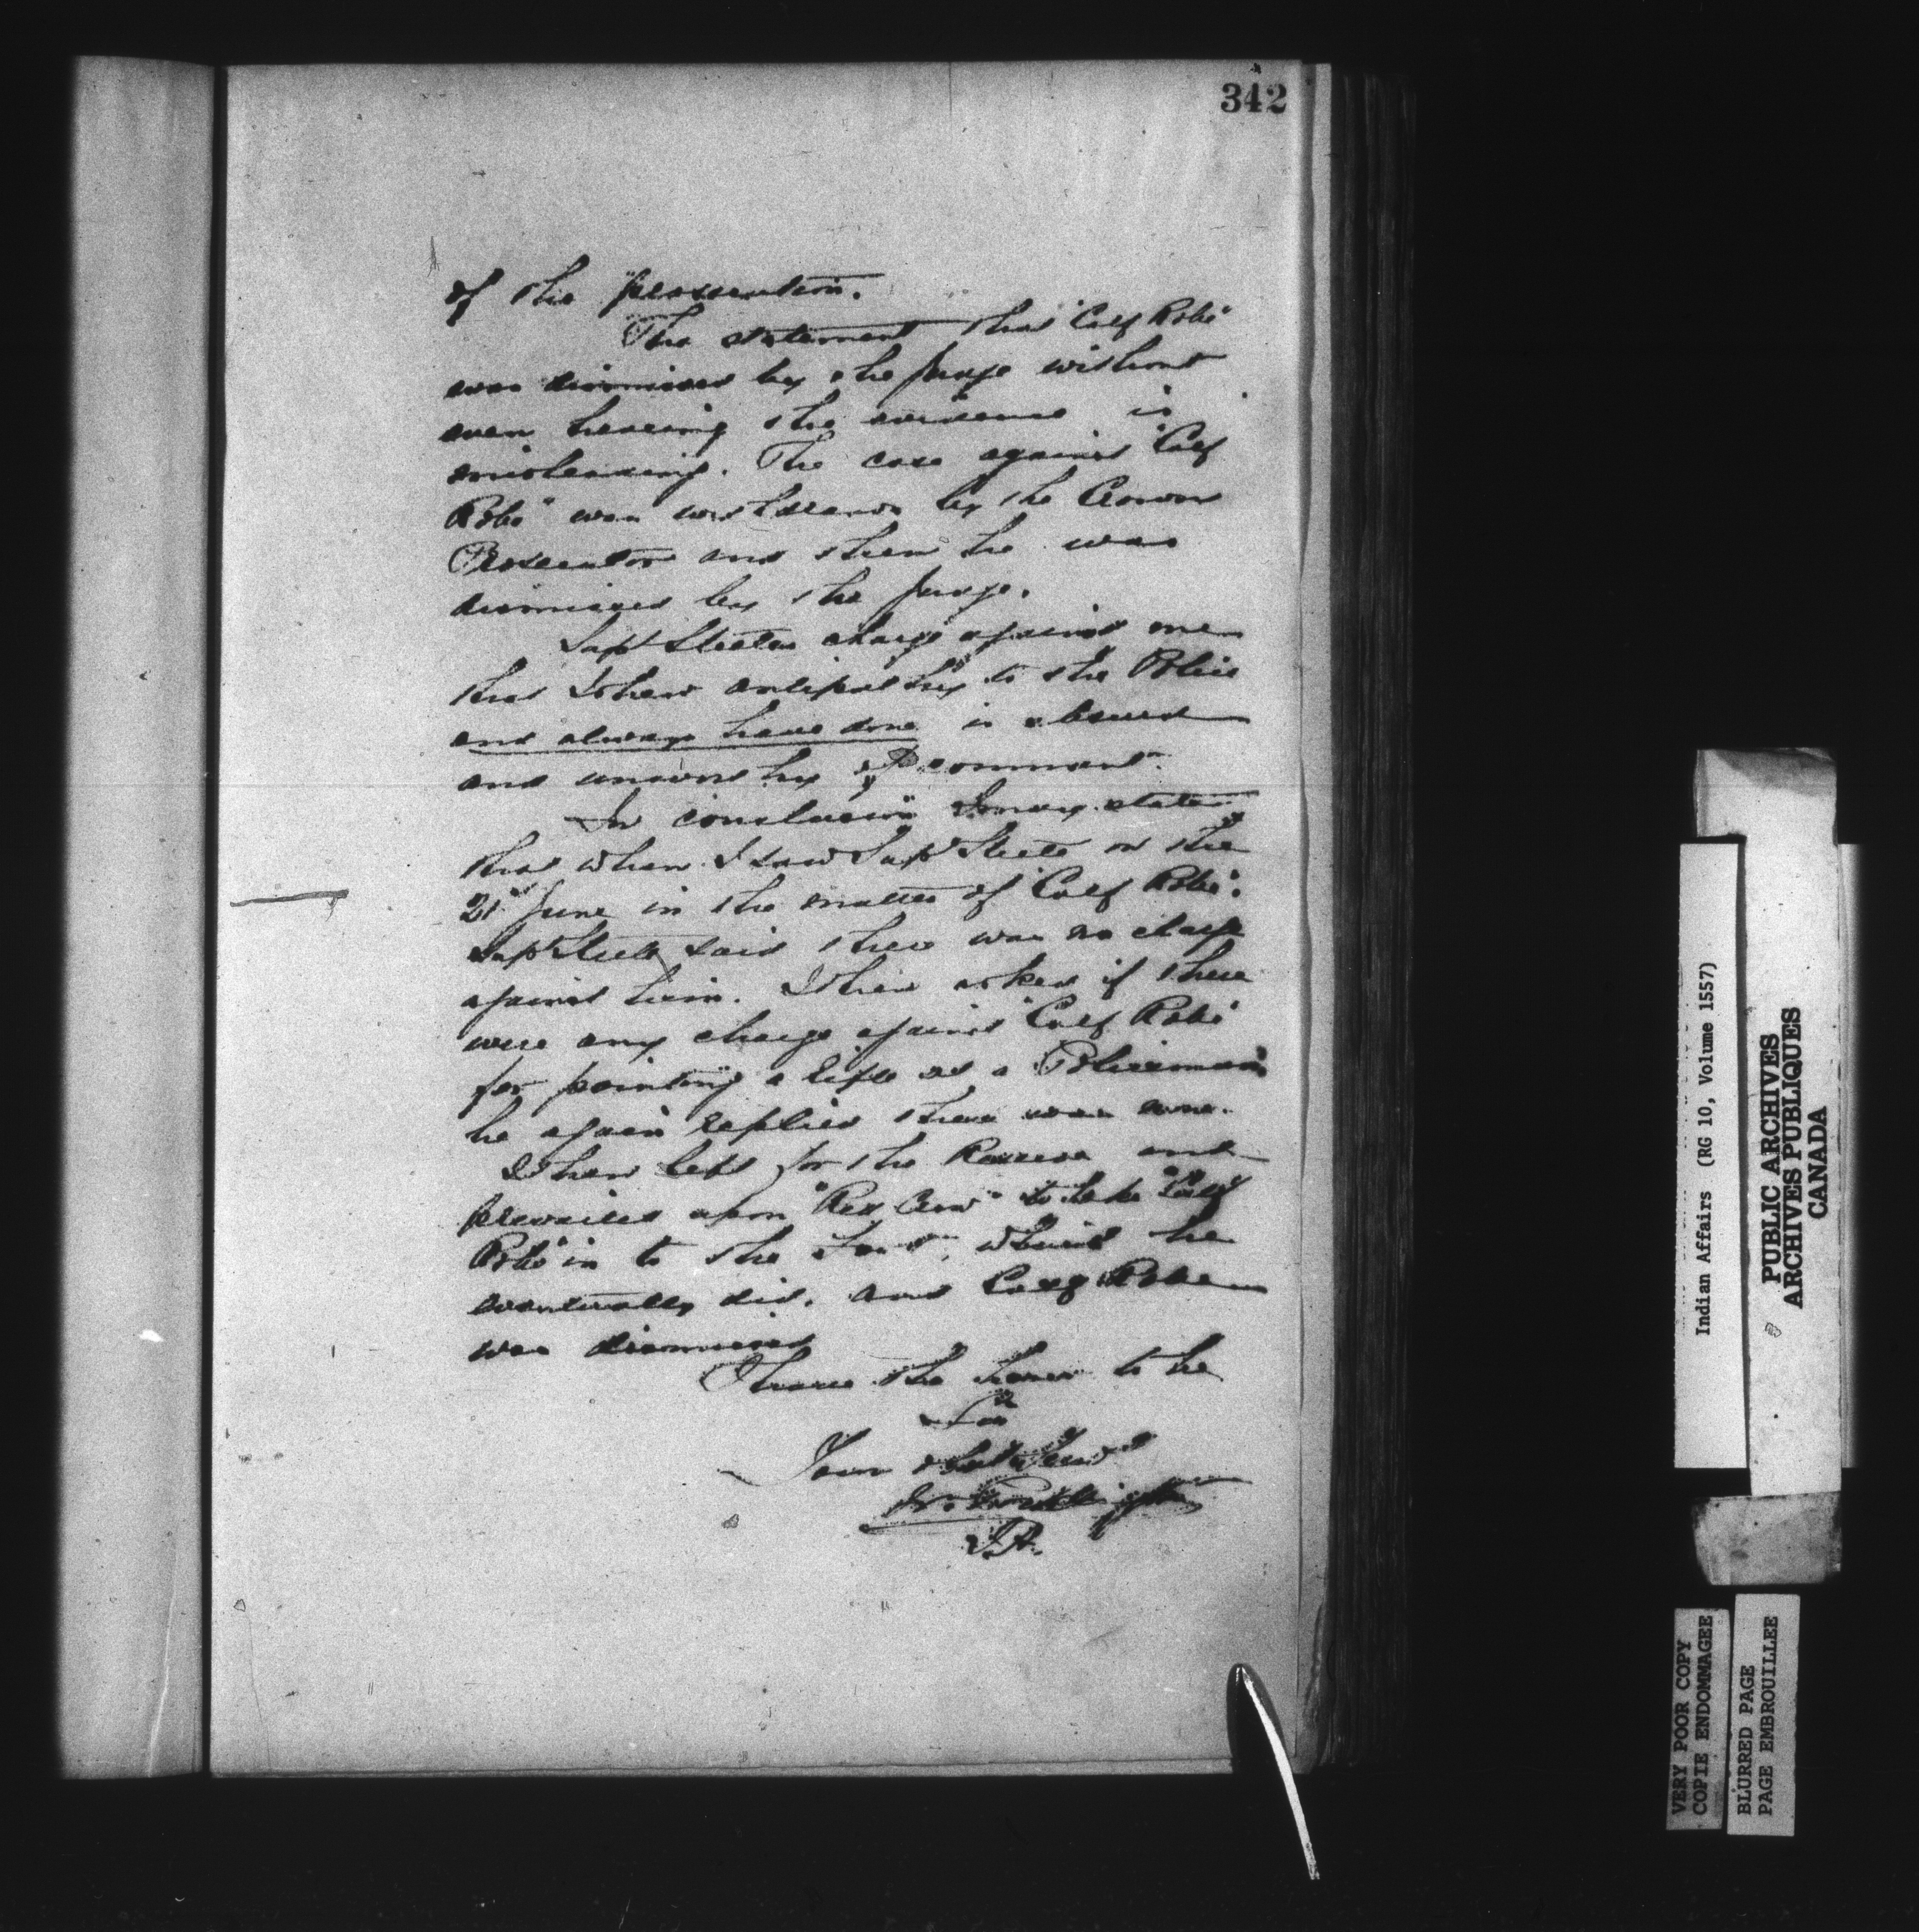 342
of the prosecution.
The statement that "Calf Robe"
was dismissed by the Judge without
even hearing the evidence is
misleading. The case against "Calf
Robe" was withdrawn by the Crown
Prosecutor and then he was
dismissed by the Judge.
Supt Steele's charge against me
that I shew antipathy to the Police
and always have done is absurd
and unworthy of comment.
In conclusion I may state
that when I saw Supt Steele on the
21st June in the matter of "Calf Robe".
Supt Steele said there was no charge
against him. I then asked if there
were any charge against "Calf Robe"
for pointing a rifle at a Policeman
he again replied there was none.
I then left for the Reserve and
prevailed upon "Red Crow" to take "Calf
Robe" in to the Fort, which he
eventually did, and Calf Robe
was dismissed
I have the honor to be
Sir
Your obdt Servt
Wm Pocklington
I.A.
Indian Affairs (RG 10, Volume 1557)
PUBLIC ARCHIVES
ARCHIVES PUBLIQUES
CANADA
VERY POOR COPY
COPIE ENDOMMAGEE
BLURRED PAGE
PAGE EMBROUILLEE